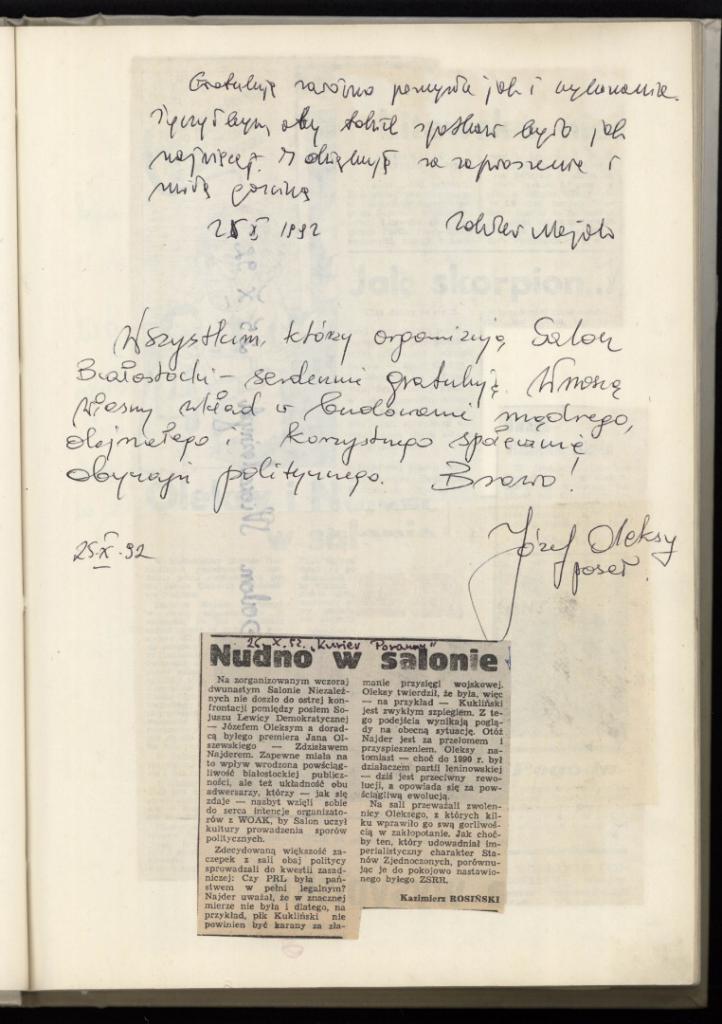 Gratuluję zarówno pomysłu jak i wykonania.
Życzyłbym, aby takich spotkań było jak
najwięcej. I dziękuję za zaproszenie i
miłą gościnę
25 X 1992
Zdzisław Najder
Wszystkim, którzy organizują Salon
Białostocki – serdecznie gratuluję. Wnoszą
własny wkład w budowanie mądrego,
dojrzałego i korzystnego społecznie
obyczaju politycznego. Brawo!
25.X.92
Józef Oleksy
poseł.
26.X.92. „Kurier Poranny"
Nudno w salonie
Na zorganizowanym wczoraj
dwunastym Salonie Niezależ-
nych nie doszło do ostrej kon-
frontacji pomiędzy posłem So-
juszu Lewicy Demokratycznej
— Józefem Oleksym a dorad-
cą byłego premiera Jana Ol-
szewskiego — Zdzisławem
Najderem. Zapewne miała na
to wpływ wrodzona powściąg-
liwość białostockiej publicz-
ności, ale też układność obu
adwersarzy, którzy — jak się
zdaje — nazbyt wzięli sobie
do serca intencje organizato-
rów z WOAK, by Salon uczył
kultury prowadzenia sporów
politycznych.
Zdecydowaną większość za-
czepek z sali obaj politycy
sprowadzali do kwestii zasad-
niczej: Czy PRL była pań-
stwem w pełni legalnym?
Najder uważał, że w znacznej
mierze nie była i dlatego, na
przykład, płk Kukliński nie
powinien być karany za zła-
manie przysięgi wojskowej.
Oleksy twierdził, że była, więc
— na przykład — Kukliński
jest zwykłym szpiegiem. Z te-
go podejścia wynikają poglą-
dy na obecną sytuację. Otóż
Najder jest za przełomem i
przyspieszeniem. Oleksy na-
tomiast — choć do 1990 r. był
działaczem partii leninowskiej
— dziś jest przeciwny rewo-
lucji, a opowiada się za pow-
ściągliwą ewolucją.
Na sali przeważali zwolen-
nicy Oleksego, z których kil-
ku wprawiło go swą gorliwoś-
cią w zakłopotanie. Jak choć-
by ten, który udowadniał im-
perialistyczny charakter Sta-
nów Zjednoczonych, porównu-
jąc je do pokojowo nastawio-
nego byłego ZSRR.
Kazimierz ROSIŃSKI
Jak skorpion..